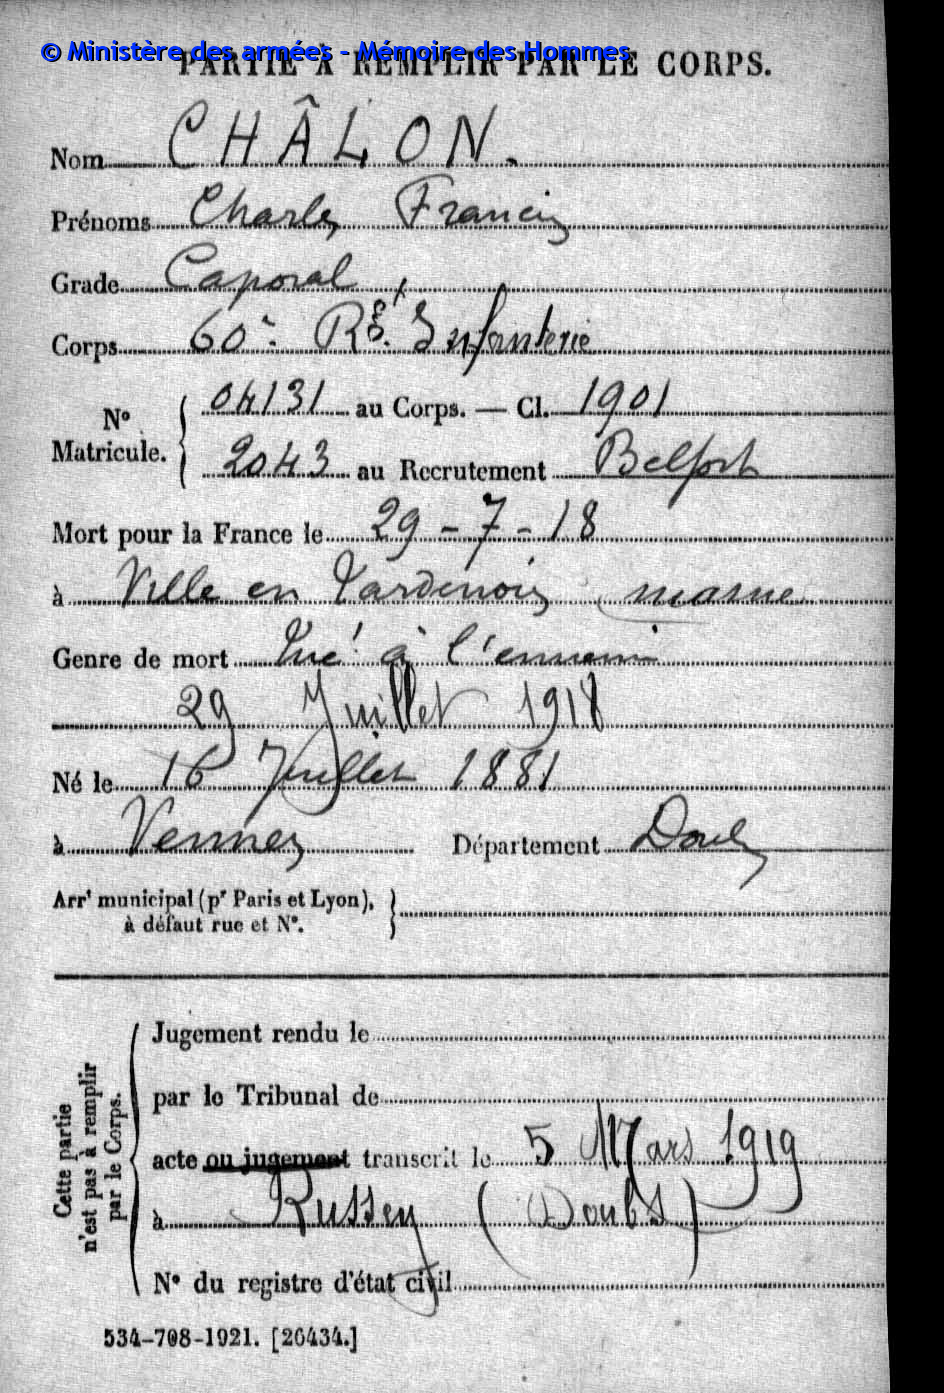 © Ministère des armées - Mémoire des Hommes
PARTIE À REMPLIR PAR LE CORPS.
Nom CHÂLON.
Prénoms Charles Francis
Grade Caporal
Corps 60e Rgt. Infanterie
No Matricule. 04131 au Corps. — Cl. 1901
2043 au Recrutement Belfort
Mort pour la France le 29-7-18
à Ville en Tardenois marne
Genre de mort tué à l'ennemi
29 Juillet 1918
Né le 16 Juillet 1881
à Vennes Département Doubs
Arrt municipal (pr Paris et Lyon),
à défaut rue et N°.
Cette partie
n'est pas à remplir
par le Corps.
Jugement rendu le
par le Tribunal de
acte ou jugement transcrit le 5 Mars 1919
à Russey (Doubs)
N° du registre d'état civil
534-708-1921. [26434.]